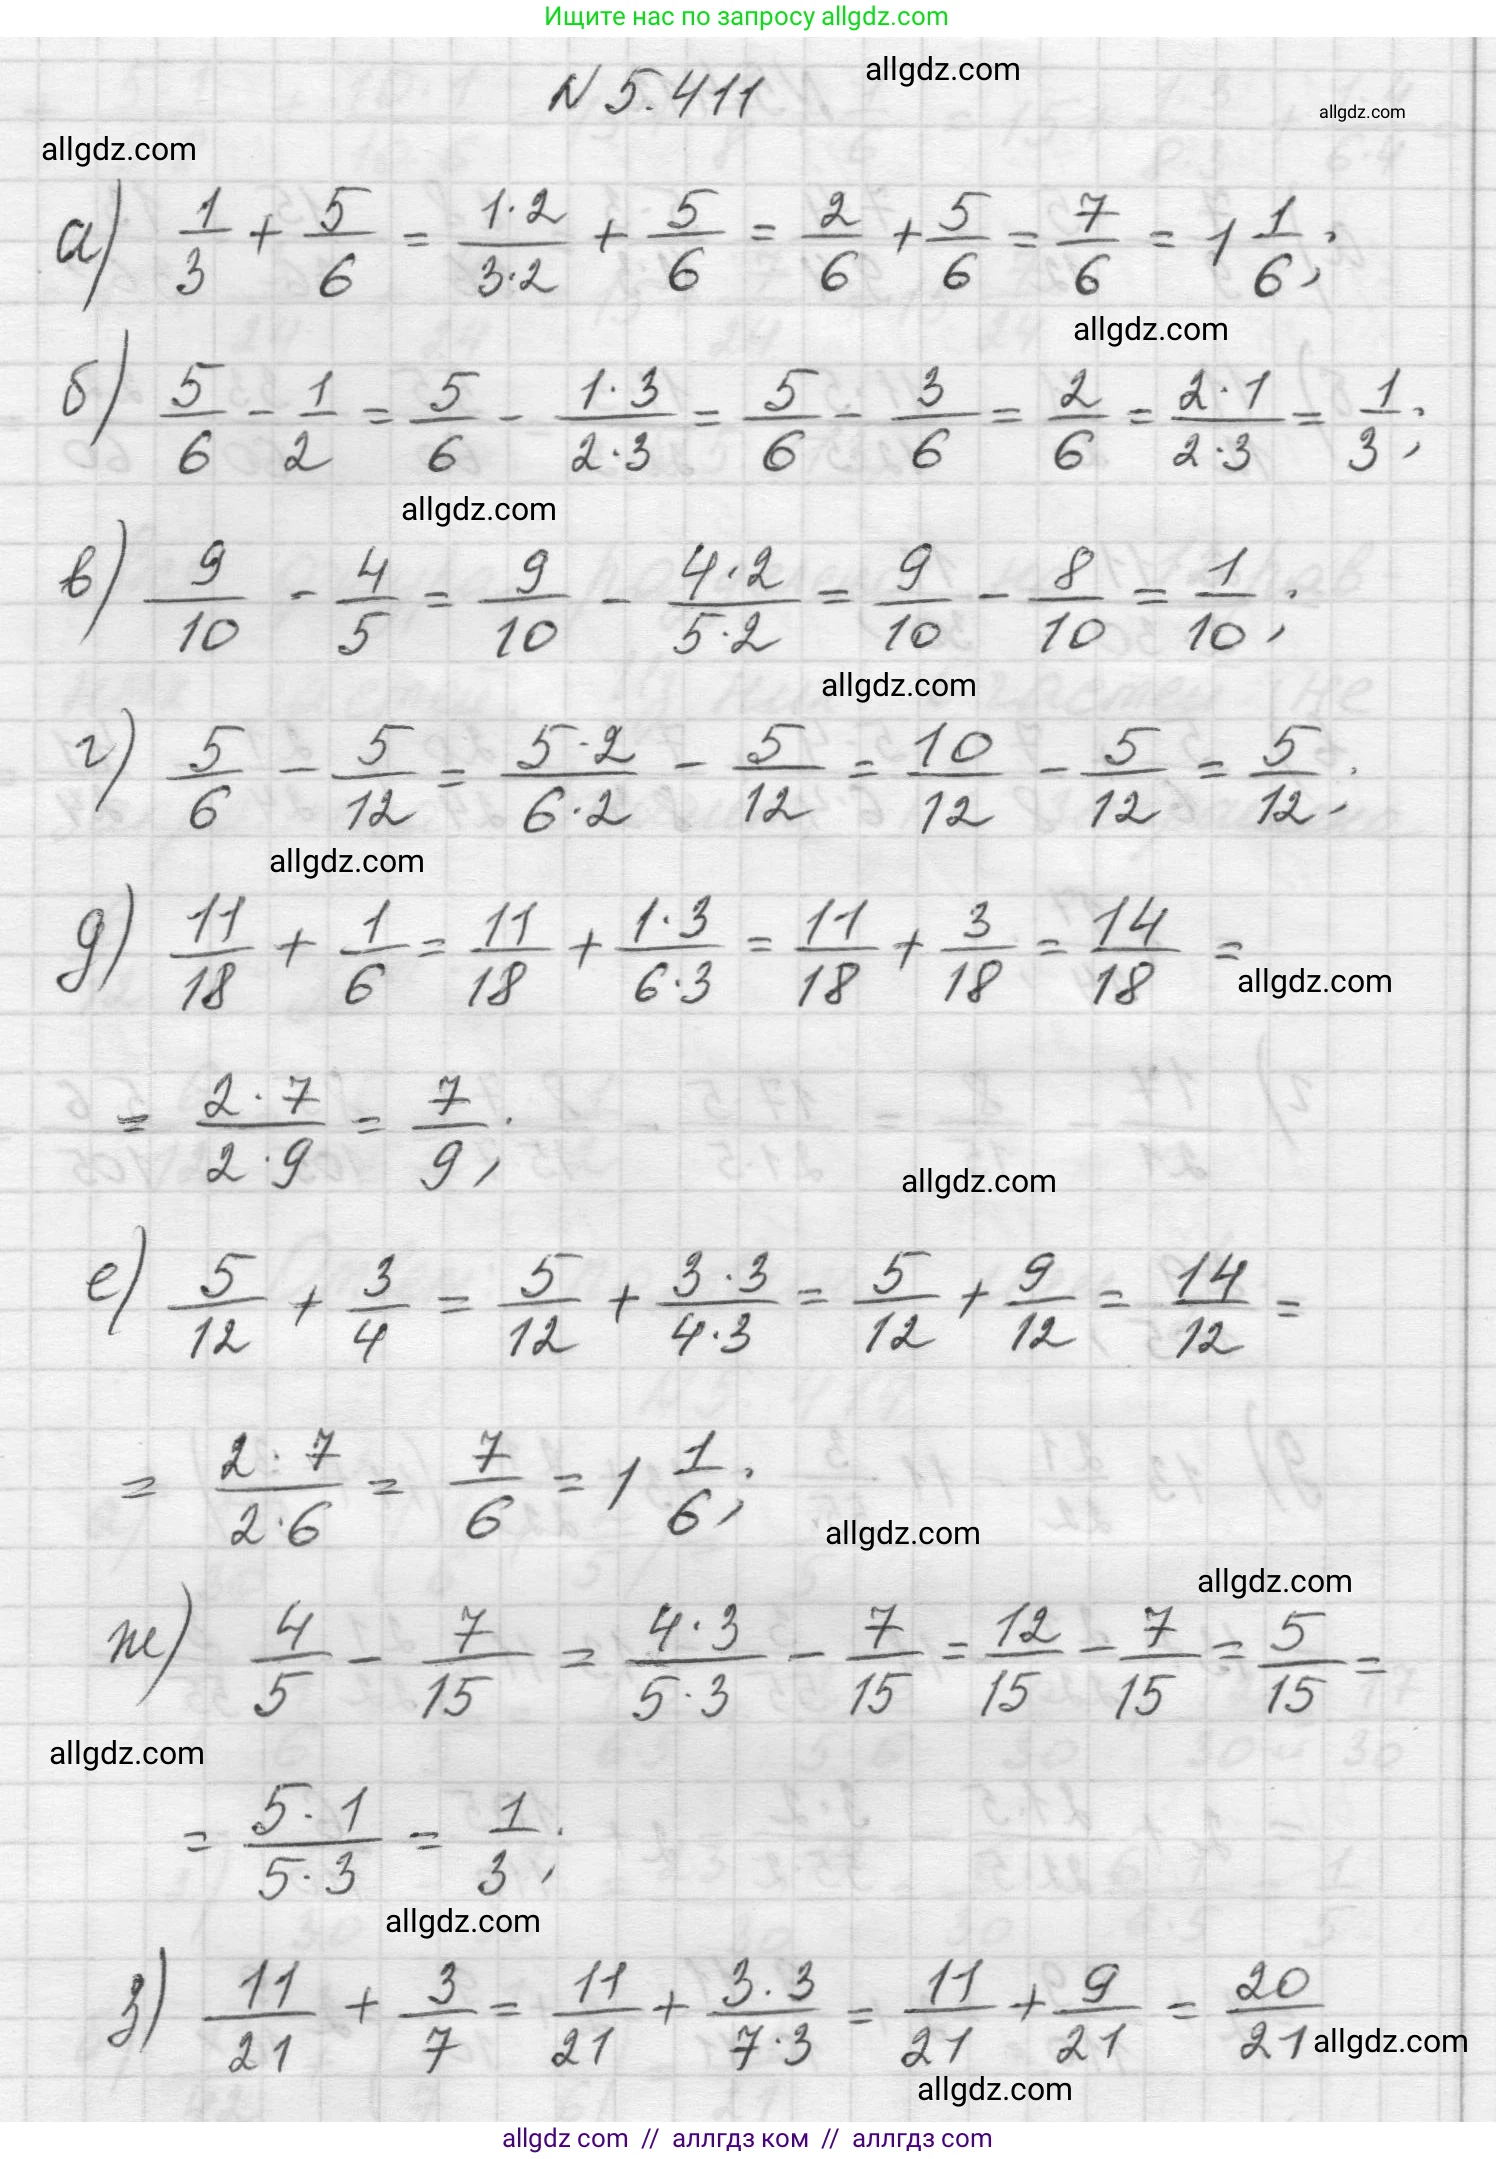 Ищите нас по запросу allgdz.com
allgdz.com
N 5.411
allgdz.com
allgdz.com
а) 1/3 + 5/6 = 1·2/3·2 + 5/6 = 2/6 + 5/6 = 7/6 = 1 1/6;
allgdz.com
б) 5/6 - 1/2 = 5/6 - 1·3/2·3 = 5/6 - 3/6 = 2/6 = 2·1/2·3 = 1/3;
allgdz.com
в) 9/10 - 4/5 = 9/10 - 4·2/5·2 = 9/10 - 8/10 = 1/10;
allgdz.com
г) 5/6 - 5/12 = 5·2/6·2 - 5/12 = 10/12 - 5/12 = 5/12;
allgdz.com
д) 11/18 + 1/6 = 11/18 + 1·3/6·3 = 11/18 + 3/18 = 14/18 =
allgdz.com
= 2·7/2·9 = 7/9;
allgdz.com
е) 5/12 + 3/4 = 5/12 + 3·3/4·3 = 5/12 + 9/12 = 14/12 =
= 2·7/2·6 = 7/6 = 1 1/6;
allgdz.com
allgdz.com
ж) 4/5 - 7/15 = 4·3/5·3 - 7/15 = 12/15 - 7/15 = 5/15 =
allgdz.com
= 5·1/5·3 = 1/3;
allgdz.com
з) 11/21 + 3/7 = 11/21 + 3·3/7·3 = 11/21 + 9/21 = 20/21
allgdz.com
allgdz.com
allgdz com // аллгдз ком // аллгдз com